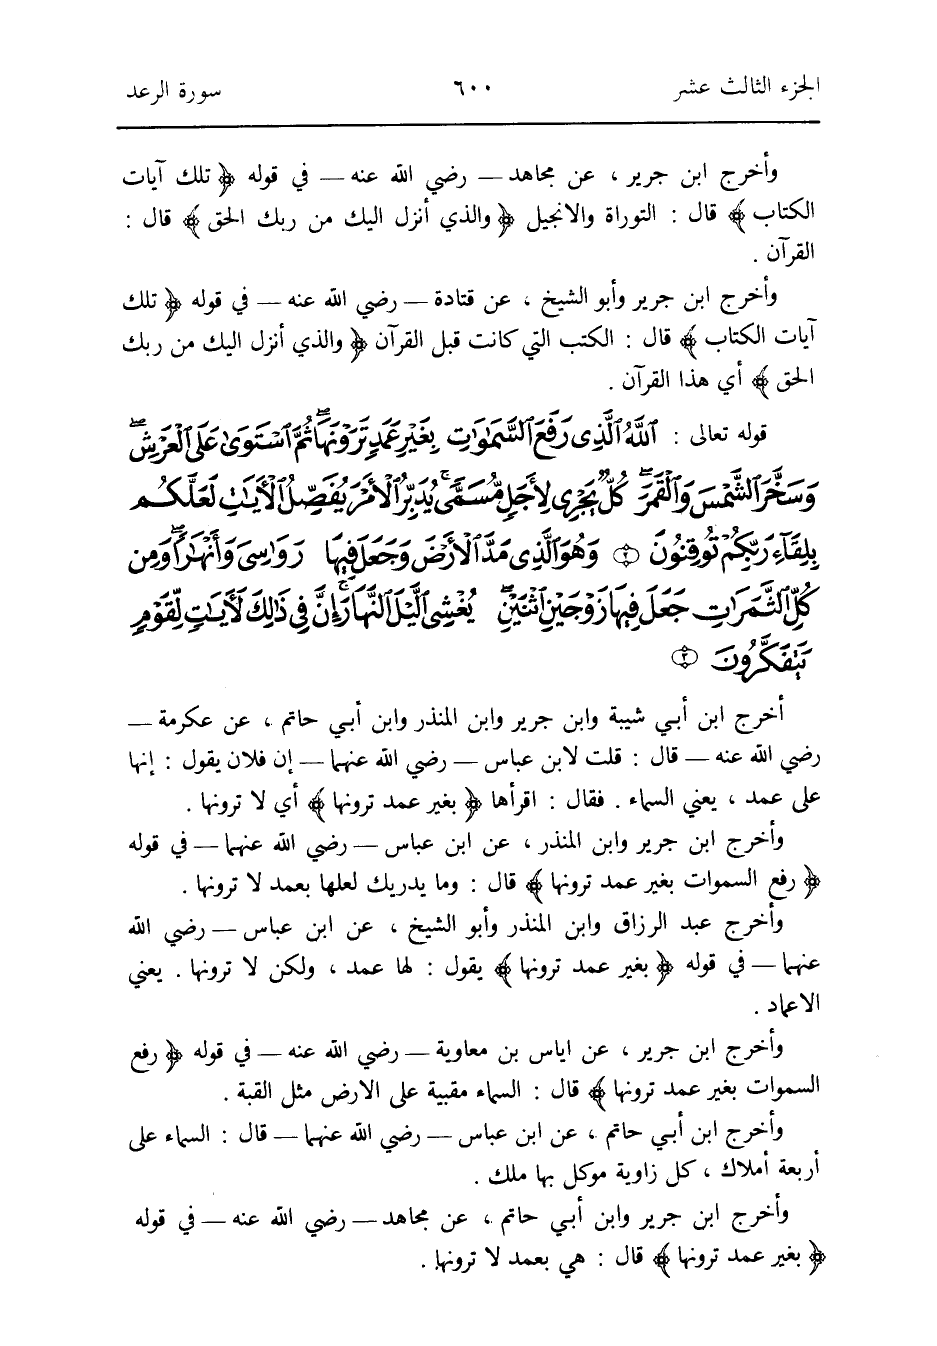 الجزء الثالث عشر ٦٠٠ سورة الرعد
وأخرج ابن جرير ، عن مجاهد — رضي الله عنه — في قوله ﴿ تلك آيات
الكتاب ﴾ قال : التوراة والانجيل ﴿ والذي أنزل اليك من ربك الحق ﴾ قال :
القرآن .
وأخرج ابن جرير وأبو الشيخ ، عن قتادة — رضي الله عنه — في قوله ﴿ تلك
آيات الكتاب ﴾ قال : الكتب التي كانت قبل القرآن ﴿ والذي أنزل اليك من ربك
الحق ﴾ أي هذا القرآن .
قوله تعالى : ٱللَّهُ ٱلَّذِى رَفَعَ ٱلسَّمَٰوَٰتِ بِغَيْرِ عَمَدٍ تَرَوْنَهَا ۖ ثُمَّ ٱسْتَوَىٰ عَلَى ٱلْعَرْشِ ۖ
وَسَخَّرَ ٱلشَّمْسَ وَٱلْقَمَرَ ۖ كُلٌّ يَجْرِى لِأَجَلٍ مُّسَمًّى ۚ يُدَبِّرُ ٱلْأَمْرَ يُفَصِّلُ ٱلْأَيَٰتِ لَعَلَّكُم
بِلِقَآءِ رَبِّكُمْ تُوقِنُونَ ﴿٢﴾ وَهُوَ ٱلَّذِى مَدَّ ٱلْأَرْضَ وَجَعَلَ فِيهَا رَوَٰسِىَ وَأَنْهَٰرًا ۖ وَمِن
كُلِّ ٱلثَّمَرَٰتِ جَعَلَ فِيهَا زَوْجَيْنِ ٱثْنَيْنِ ۖ يُغْشِى ٱلَّيْلَ ٱلنَّهَارَ ۚ إِنَّ فِى ذَٰلِكَ لَأَيَٰتٍ لِّقَوْمٍ
يَتَفَكَّرُونَ ﴿٣﴾
أخرج ابن أبي شيبة وابن جرير وابن المنذر وابن أبي حاتم ، عن عكرمة —
رضي الله عنه — قال : قلت لابن عباس — رضي الله عنهما — إن فلان يقول : إنها
على عمد ، يعني السماء . فقال : اقرأها ﴿ بغير عمد ترونها ﴾ أي لا ترونها .
وأخرج ابن جرير وابن المنذر ، عن ابن عباس — رضي الله عنهما — في قوله
﴿ رفع السموات بغير عمد ترونها ﴾ قال : وما يدريك لعلها بعمد لا ترونها .
وأخرج عبد الرزاق وابن المنذر وأبو الشيخ ، عن ابن عباس — رضي الله
عنهما — في قوله ﴿ بغير عمد ترونها ﴾ يقول : لها عمد ، ولكن لا ترونها . يعني
الاعماد .
وأخرج ابن جرير ، عن اياس بن معاوية — رضي الله عنه — في قوله ﴿ رفع
السموات بغير عمد ترونها ﴾ قال : السماء مقببة على الارض مثل القبة .
وأخرج ابن أبي حاتم ، عن ابن عباس — رضي الله عنهما — قال : السماء على
أربعة أملاك ، كل زاوية موكل بها ملك .
وأخرج ابن جرير وابن أبي حاتم ، عن مجاهد — رضي الله عنه — في قوله
﴿ بغير عمد ترونها ﴾ قال : هي بعمد لا ترونها .